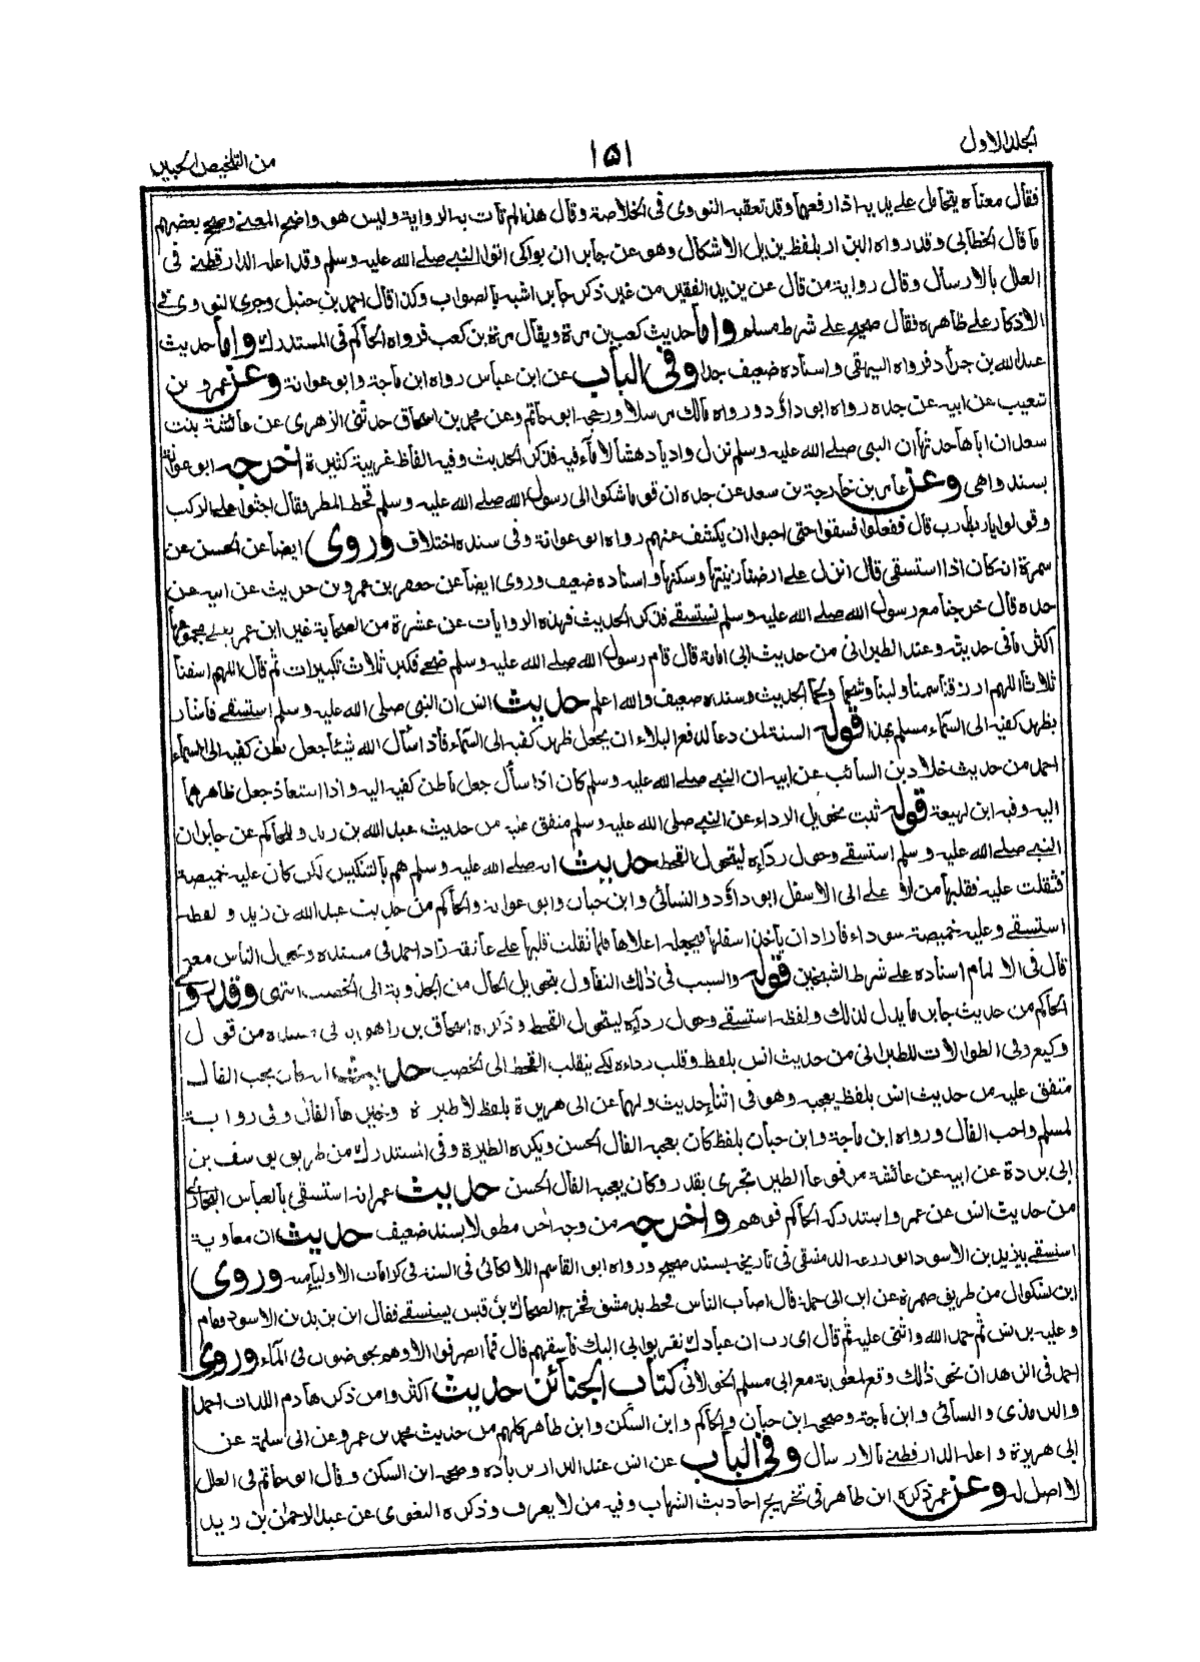 الجلد الاول
١٥١
من التلخيص الحبير
فقال معناه يتحامل على يديه اذا رفعهما وقد تعقبه النووى فى الخلاصة وقال هذا لم تات به الرواية وليس هو واضح المعنى وصحح بعضهم
ما قال الخطابى وقد رواه البزار بلفظ يزيل الاشكال وهو عن جابر ان بواكى اتوا النبى صلے الله عليه وسلم وقد اعله الدارقطنے فى
العلل بالارسال وقال رواية من قال عن يزيد الفقير من غير ذكر جابر اشبه بالصواب وكذا قال احمد بن حنبل وجرى النووى فے
الاذكار على ظاهره فقال صحيح على شرط مسلم واما حديث كعب بن مرة ويقال مرة بن كعب فرواه الحاكم فى المستدرك واما حديث
عبد الله بن جراد فرواه البيهقى واسناده ضعيف جدا وفى الباب عن ابن عباس رواه ابن ماجة وابو عوانة وعن عمرو بن
شعيب عن ابيه عن جده رواه ابو داؤد ورواه مالك مرسلا ورجحه ابو حاتم وعن محمد بن اسحاق حدثنى الزهرى عن عائشة بنت
سعد ان اباها حدثها ان النبى صلے الله عليه وسلم نزل واديا دهشا لا ماء فيه فذكر الحديث وفيه الفاظ غريبة كثيرة اخرجه ابو عوانة
بسند واهى وعن عامر بن خارجة بن سعد عن جده ان قوما شكوا الى رسول الله صلے الله عليه وسلم قحط المطر فقال اجثوا على الركب
وقولوا يا رب يا رب قال ففعلوا فسقوا حتى احبوا ان يكشف عنهم رواه ابو عوانة وفى سنده اختلاف وروى ايضا عن الحسن عن
سمرة انه كان اذا استسقى قال انزل على ارضنا زينتها وسكنها واسناده ضعيف وروى ايضا عن جعفر بن عمرو بن حريث عن ابيه عن
جده قال خرجنا مع رسول الله صلے الله عليه وسلم نستسقے فذكر الحديث فهذه الروايات عن عشرة من الصحابة غير ابن عمر يعطے مجموعها
اكثر ما فى حديثه وعند الطبرانى من حديث ابى امامة قال قام رسول الله صلے الله عليه وسلم ضحے فكبر ثلاث تكبيرات ثم قال اللهم اسقنا
ثلاثا اللهم ارزقنا سمنا ولبنا وشحما ولحما الحديث وسنده ضعيف والله اعلم حديث انس ان النبى صلى الله عليه وسلم استسقے فاشار
بظهر كفيه الى السماء مسلم بهذا قوله السنة لمن دعا لدفع البلاء ان يجعل ظهر كفيه الى السماء فاذا سأل الله شيئا جعل بطن كفيه الى السماء
احمد من حديث خلاد بن السائب عن ابيه ان النبے صلے الله عليه وسلم كان اذا سأل جعل باطن كفيه اليه واذا استعاذ جعل ظاهرهما
اليه وفيه ابن لهيعة قوله ثبت تحويل الرداء عن النبے صلى الله عليه وسلم متفق عليه من حديث عبد الله بن زيد وللحاكم عن جابر ان
النبے صلے الله عليه وسلم استسقے وحول رداءه ليتحول القحط حديث انه صلے الله عليه وسلم هم بالتنكيس لكن كان عليه خميصة
فثقلت عليه فقلبها من الا علے الى الاسفل ابو داؤد والنسائى وابن حبان وابو عوانة والحاكم من حديث عبد الله بن زيد ولفظه
استسقے وعليه خميصة سوداء فاراد ان ياخذ اسفلها فيجعله اعلاها فلما ثقلت قلبها على عاتقه زاد احمد فى مسنده وتحول الناس معه
قال فى الالمام اسناده على شرط الشيخين قوله والسبب فى ذلك التفاول بتحويل الحال من الجدوبة الى الخصب انتهى وقد روى
الحاكم من حديث جابر ما يدل لذلك ولفظه استسقے وحول رداءه ليتحول القحط وذكره اسحاق بن راهويه فى مسنده من قول
وكيع وفى الطوالات للطبرانى من حديث انس بلفظ وقلب رداءه لكے ينقلب القحط الى الخصب حديث انه كان يحب الفال
متفق عليه من حديث انس بلفظ يعجبه وهو فى اثناء حديث ولهما عن ابى هريرة بلفظ لا طيرة وخيرها الفال وفى رواية
لمسلم واحب الفال ورواه ابن ماجة وابن حبان بلفظ كان يعجبه الفال الحسن ويكره الطيرة وفى المستدرك من طريق يوسف بن
ابى بردة عن ابيه عن عائشة مرفوعا الطير تجرى بقدر وكان يعجبه الفال الحسن حديث عمر انه استسقى بالعباس البخارى
من حديث انس عن عمر واستدركه الحاكم فوهم واخرجه من وجه اخر مطولا بسند ضعيف حديث ان معاوية
استسقے بيزيد بن الاسود ابو زرعة الدمشقى فى تاريخه بسند صحيح ورواه ابو القاسم اللالكائى فى السنة فى كرامات الاولياء منه وروى
ابن بشكوال من طريق ضمرة عن ابن ابى حملة قال اصاب الناس قحط بدمشق فخرج الضحاك بن قيس يستسقے فقال اين يزيد بن الاسود فقام
وعليه برنس ثم حمد الله واثنى عليه ثم قال اى رب ان عبادك تقربوا بى اليك فاسقهم قال فما انصرفوا الا وهم يخوضون فى الماء وروى
احمد فى الزهد ان نحو ذلك وقع لمعاوية مع ابى مسلم الخولانى كتاب الجنائز حديث اكثروا من ذكر هادم اللذات احمد
والترمذى والنسائى وابن ماجة وصححه ابن حبان والحاكم وابن السكن وابن طاهر كلهم من حديث محمد بن عمرو عن ابى سلمة عن
ابى هريرة واعله الدارقطنے بالارسال وفى الباب عن انس عند البزار بزيادة وصححه ابن السكن وقال ابو حاتم فى العلل
لا اصل له وعن عمر ذكره ابن طاهر فى تخريج احاديث الشهاب وفيه من لا يعرف وذكره البغوى عن عبد الرحمن بن زيد